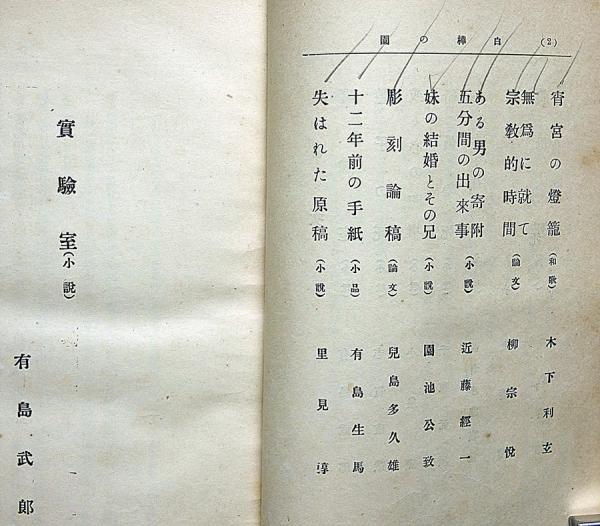 (2) 白樺の園
宵宮の燈籠(和歌) 木下利玄
無爲に就て
宗教的時間(論文) 柳宗悅
ある男の寄附
五分間の出來事(小說) 近藤經一
妹の結婚とその兄(小說) 園池公致
彫刻論稿(論文) 兒島多久雄
十二年前の手紙(小品) 有島生馬
失はれた原稿(小說) 里見淳
實驗室(小說)
有島武郞